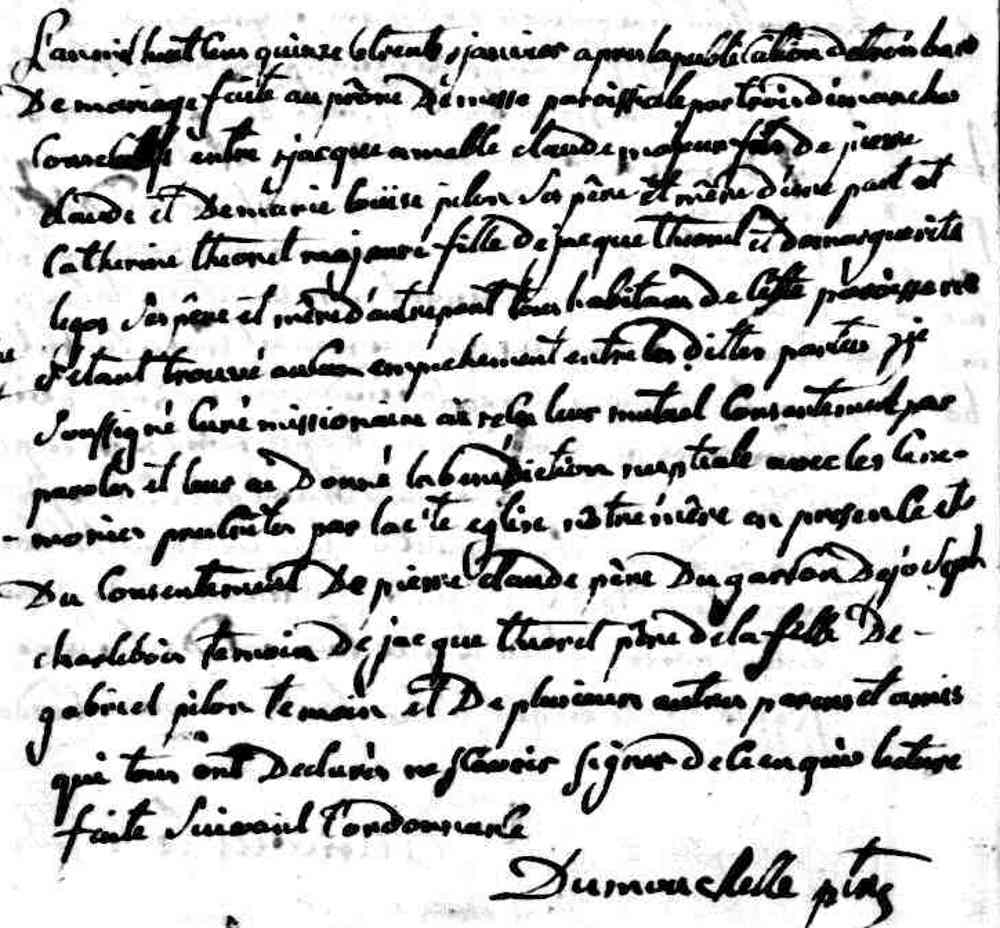 L'an mil huit cens quinze le trente janvier apres la publication de trois bans
De mariage faite au prône De messe paroissiale par trois dimanches
Consecutifs entre jacque amable claude majeur fils De pierre
claude et De marie louise pilon ses père et mère d'une part et
Catherine thoret majeure fille De jacque thoret et de marguerite
legos ses père et mère d'autre part tous habitans de Cette paroisse ne
s'etant trouvé aucun empechement entre les dittes parties je
soussigné curé missionaire ai reçu leur mutuel Consentement par
paroles et leur ai Donné la benediction nuptiale avec les Cere-
-monies prescrites par la ste eglise nôtre mère en presence et
Du Consentement De pierre claude père Du garson De joseph
charlebois temoin De jacque thoret père de la fille De-
gabriel pilon temoin et De plusieurs autres parens et amis
qui tous ont Declarés ne sçavoir signer de Ce enquis lecture
faite suivant l'ordonnance
Dumouchelle ptre